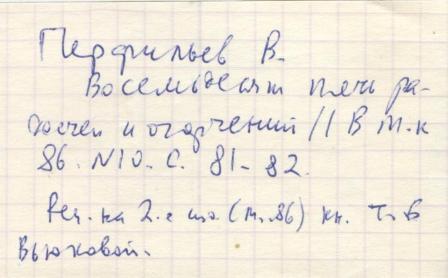 Перфильев В.
Восемьдесят пять ра-
достей и огорчений // В м. к
86. N10. С. 81-82.
Рец. на 2-е изд. (М. 86) кн. Т. Б
Вьюковой.